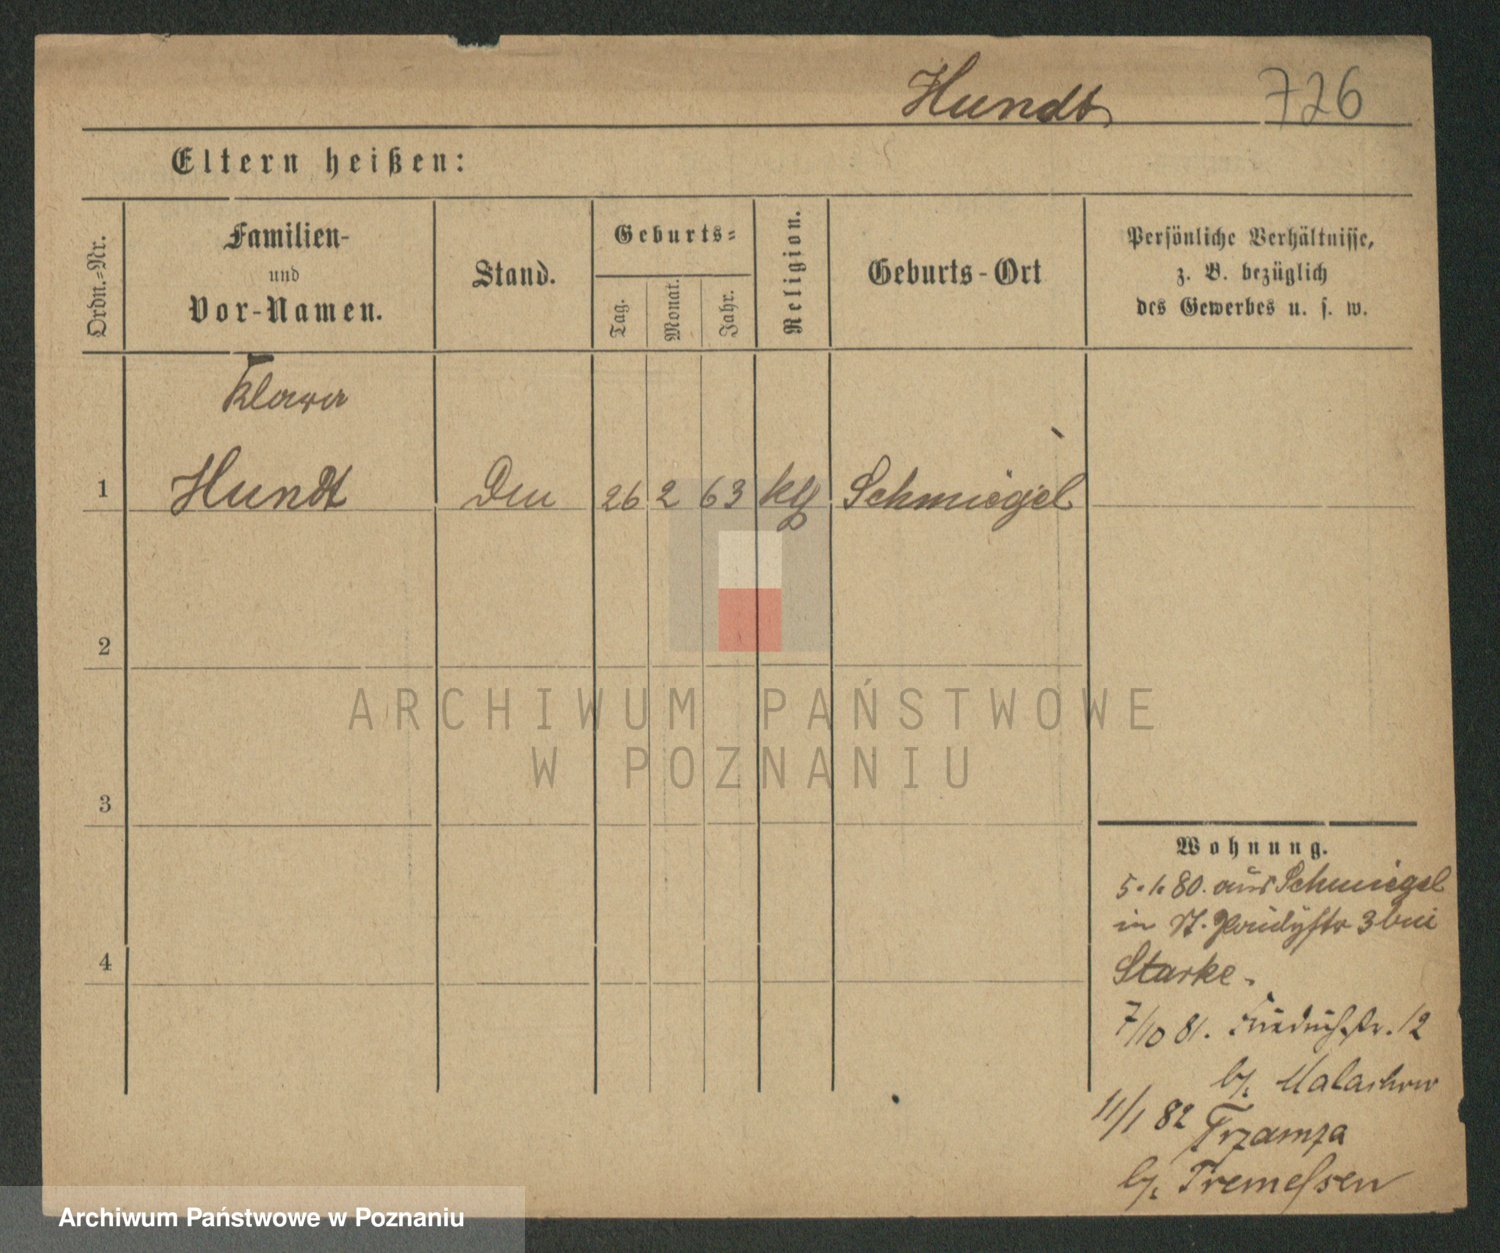 Hundt 726
Eltern heißen:
Ordn.-Nr.
Familien-
und
Vor-Namen.
Stand.
Geburts-
Tag.
Monat.
Jahr.
Religion.
Geburts-Ort
Persönliche Verhältnisse,
z. B. bezüglich
des Gewerbes u. s. w.
Klara
1 Hundt 26 2 63 Schmiegel
2
3
4
Wohnung.
5.1.80. aus Schmiegel
in St. 3 bei
Starke.
7/10 81. Friedrichstr. 12
b/. Malachow
11/1 82 Trzamza
b/. Tremessen
ARCHIWUM PAŃSTWOWE
W POZNANIU
Archiwum Państwowe w Poznaniu